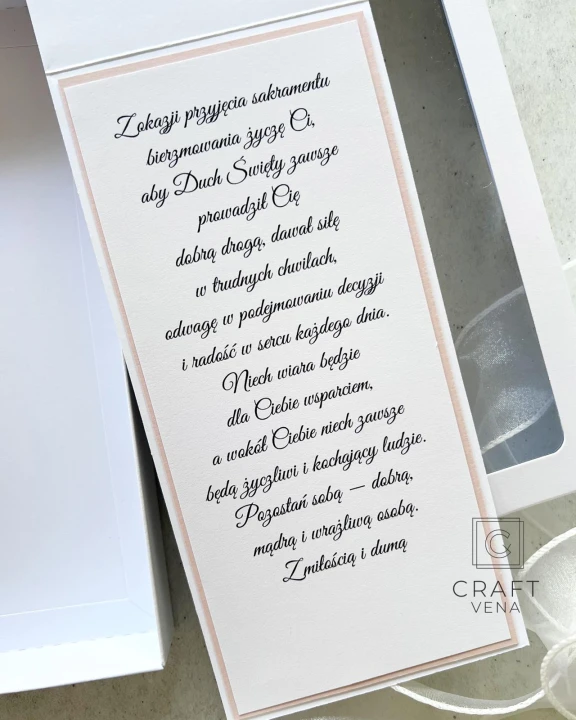 Z okazji przyjęcia sakramentu
bierzmowania życzę Ci,
aby Duch Święty zawsze
prowadził Cię
dobrą drogą, dawał siłę
w trudnych chwilach,
odwagę w podejmowaniu decyzji
i radość w sercu każdego dnia.
Niech wiara będzie
dla Ciebie wsparciem,
a wokół Ciebie niech zawsze
będą życzliwi i kochający ludzie.
Pozostań sobą — dobrą,
mądrą i wrażliwą osobą.
Z miłością i dumą
C
CRAFT
VENA